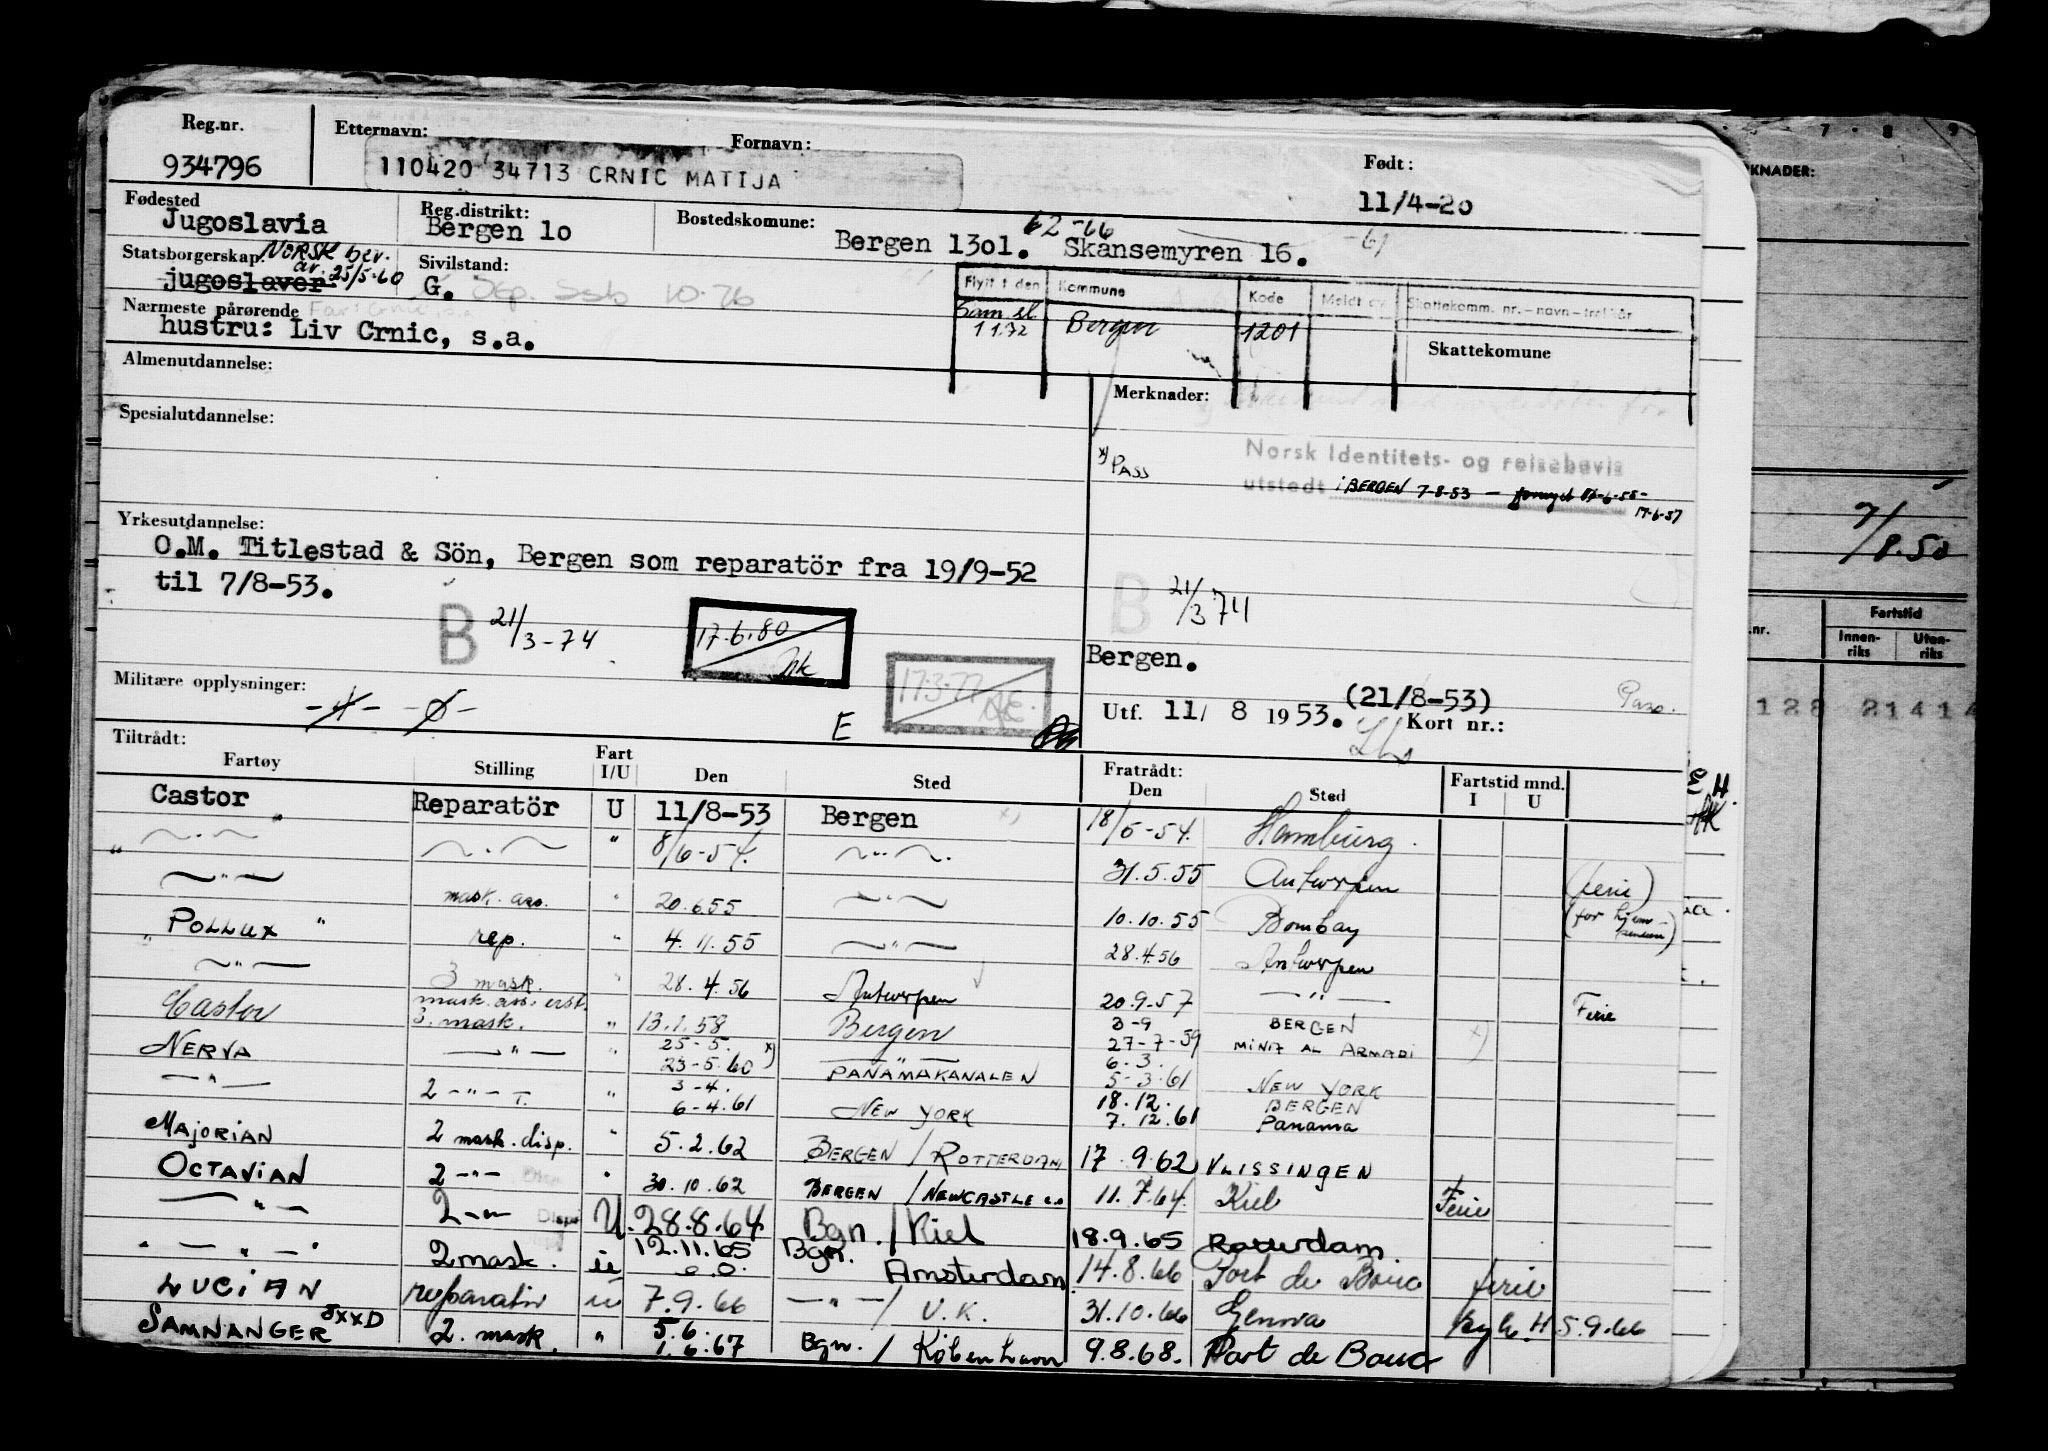 Reg.nr. Etternavn: Fornavn: Født:
934796 110420 34713 CRNIC MATIJA 11/4-20
Fødested Reg.distrikt: Bostedskomune: 62-66
Jugoslavia Bergen 1o Bergen 13o1. Skansemyren 16.
Statsborgerskap NORSK bev. Sivilstand:
av. 25/5-60
jugoslaver G. Sep. 10-76
Flytt t den Kommune Kode Meldt av Skattekomm. nr. - navn -
Nærmeste pårørende
hustru: Liv Crnic, s.a.
Sam el. 1 1.72 Bergen 1201
Skattekomune
Almenutdannelse:
Merknader:
Spesialutdannelse:
x) PASS
Norsk Identitets- og reisebevis
utstedt i BERGEN 7-8-53 - fornyet 17-6-55-
17-6-57
Yrkesutdannelse:
O.M. Titlestad & Sön, Bergen som reparatör fra 19/9-52
til 7/8-53.
B 21/3-74 17.6.80
B 21/3 74
Bergen.
Militære opplysninger: 17-3-77
E
(21/8-53)
Utf. 11/ 8 1953. Kort nr.: Pass.
Tiltrådt: Fratrådt:
Fartøy Stilling Fart I/U Den Sted Den Sted Fartstid mnd. I U
Castor Reparatör U 11/8-53 Bergen 18/5-54. Hamburg.
" — " — — " — " 8/6-54. — " — 31.5.55 Antwerpen (ferie)
— " — mask. ass. " 20.6.55 — " — 10.10.55 Bombay (for hjem-
POLLUX " rep. " 4.11.55 — " — 28.4.56 Antwerpen
— " — 3 mask. " 28.4.56 Antwerpen 20.9-57 — " — Ferie
Castor mask. ass. erst.
3. mask. " 13.1.58 Bergen 3-9 BERGEN
NERVA — " — " 25-5. x) — " — 27-7-59 MINA AL
23-5.60 PANAMAKANALEN 6-3.
— " — 2 — " — T. " 3-4. 5-3.61 NEW YORK
6-4.61 NEW YORK 18.12. BERGEN
7.12.61 Panama
MAJORIAN 2 mask. disp. " 5.2.62 BERGEN / ROTTERDAM 17.9.62 VLISSINGEN
OCTAVIAN 2 — " — " 30.10.62 BERGEN / NEWCASTLE 11.7.64. Kiel Ferie
— " — 2 — " — Disp. U. 28.8.64 Bgn. / Kiel 18.9.65 Rotterdam
— " — 2 mask. 12.11.65 Bgn. Amsterdam 14.8.66 Port de Bouc ferie
LUCIAN reparatør 7.9.66 — " — / U.K. 31.10.66 Genova syk. H 5.9.66
SAMNANGER JXXD 2. mask. " 5.6.
1.6.67 Bgn. / København 9.8.68. Port de Bouc
7 8 9
KNADER:
7/8.50
.nr. Fartstid
Innen-riks Uten-riks
128 21414